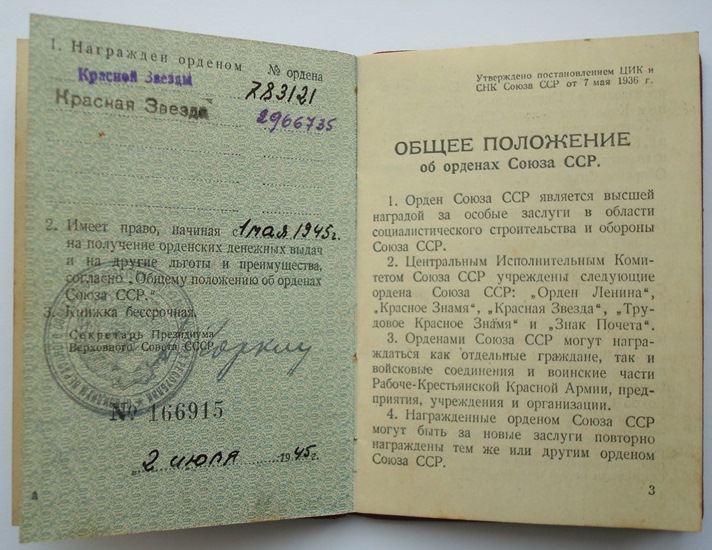 1. Награжден орденом № ордена
Красной Звезды 783121
Красная Звезда 2966735
2. Имеет право, начиная с 1 мая 1945г.
на получение орденских денежных выдач
и на другие льготы и преимущества,
согласно „Общему положению об орденах
Союза ССР."
3. Книжка бессрочная.
Секретарь Президиума
Верховного Совета СССР
№ 166915
„2 июля 1945г.
А
Утверждено постановлением ЦИК и
СНК Союза ССР от 7 мая 1936 г.
ОБЩЕЕ ПОЛОЖЕНИЕ
об орденах Союза ССР.
1. Орден Союза ССР является высшей
наградой за особые заслуги в области
социалистического строительства и обороны
Союза ССР.
2. Центральным Исполнительным Коми-
тетом Союза ССР учреждены следующие
ордена Союза ССР: „Орден Ленина",
„Красное Знамя", „Красная Звезда", „Тру-
довое Красное Знамя" и „Знак Почета".
3. Орденами Союза ССР могут наго-
аждаться как отдельные граждане, так и
войсковые соединения и воинские части
Рабоче-Крестьянской Красной Армии, пред-
приятия, учреждения и организации.
4. Награжденные орденом Союза ССР
могут быть за новые заслуги повторно
награждены тем же или другим орденом
Союза ССР.
3